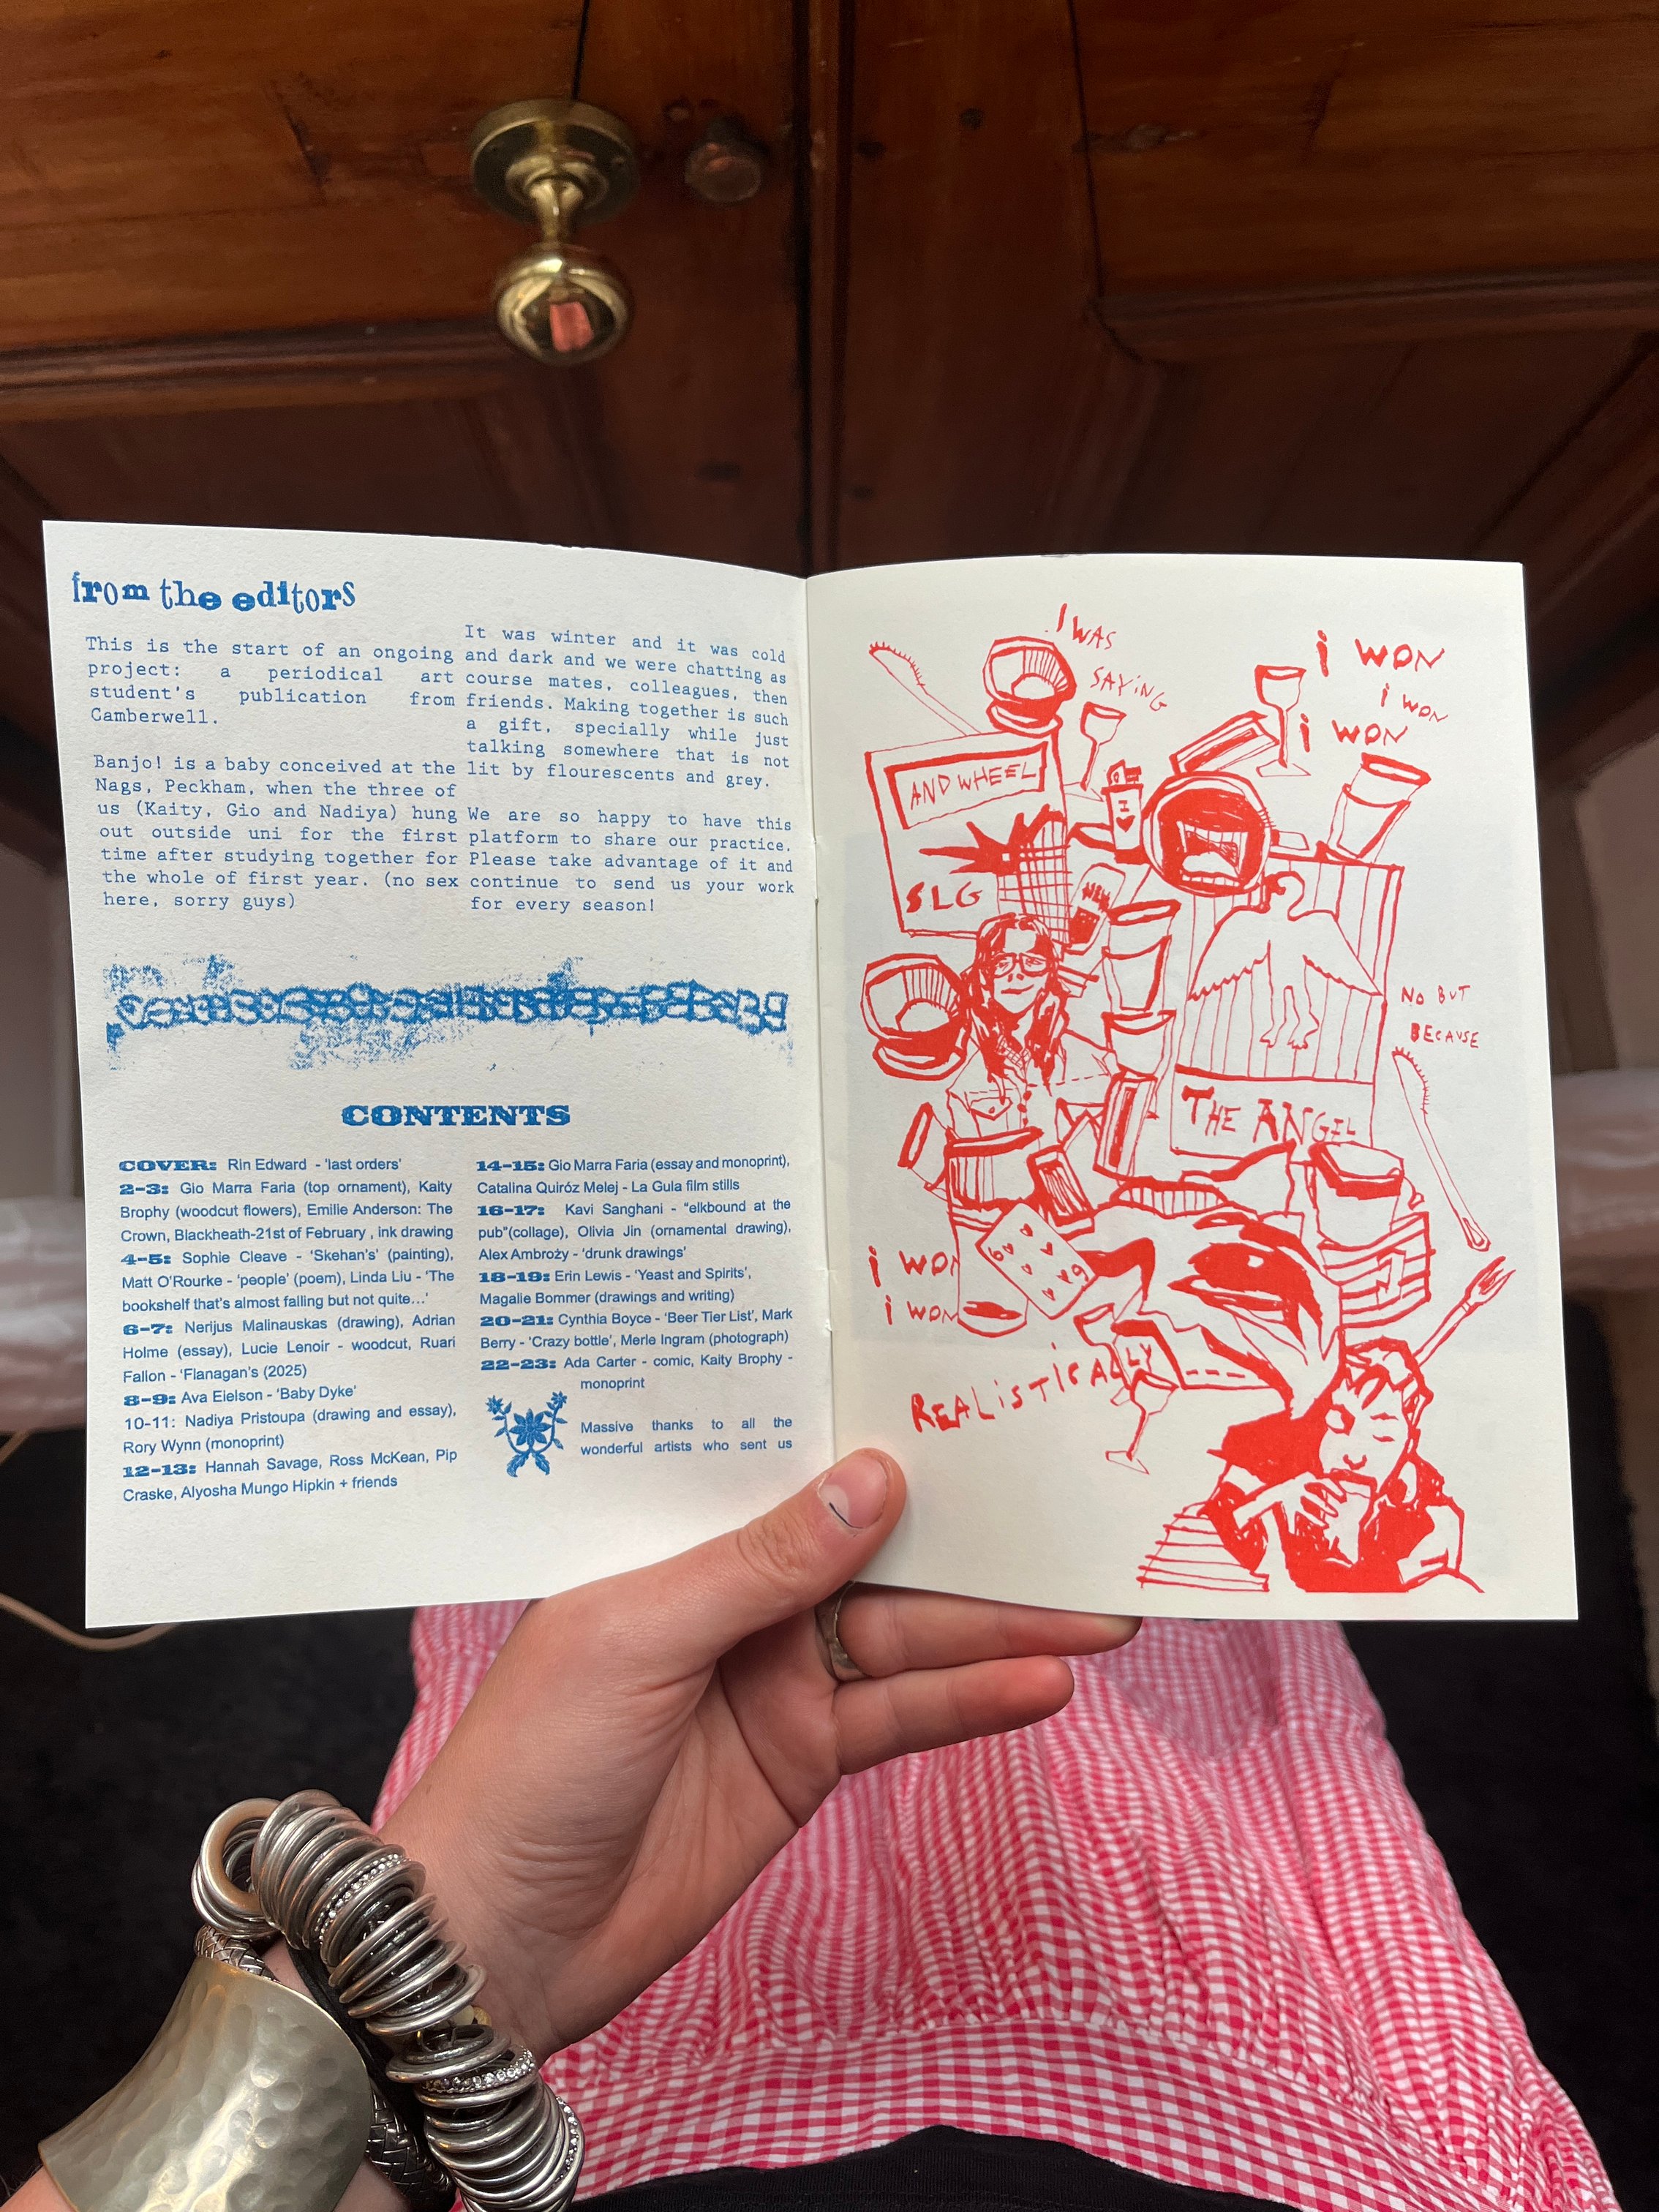 from the editors
This is the start of an ongoing
project: a periodical art
student's publication from
Camberwell.
Banjo! is a baby conceived at the
Nags, Peckham, when the three of
us (Kaity, Gio and Nadiya) hung
out outside uni for the first
time after studying together for
the whole of first year. (no sex
here, sorry guys)
It was winter and it was cold
and dark and we were chatting as
course mates, colleagues, then
friends. Making together is such
a gift, specially while just
talking somewhere that is not
lit by flourescents and grey.
We are so happy to have this
platform to share our practice.
Please take advantage of it and
continue to send us your work
for every season!
CONTENTS
COVER: Rin Edward - 'last orders'
2-3: Gio Marra Faria (top ornament), Kaity
Brophy (woodcut flowers), Emilie Anderson: The
Crown, Blackheath-21st of February , ink drawing
4-5: Sophie Cleave - 'Skehan's' (painting),
Matt O'Rourke - 'people' (poem), Linda Liu - 'The
bookshelf that's almost falling but not quite...'
6-7: Nerijus Malinauskas (drawing), Adrian
Holme (essay), Lucie Lenoir - woodcut, Ruari
Fallon - 'Flanagan's (2025)
8-9: Ava Eielson - 'Baby Dyke'
10-11: Nadiya Pristoupa (drawing and essay),
Rory Wynn (monoprint)
12-13: Hannah Savage, Ross McKean, Pip
Craske, Alyosha Mungo Hipkin + friends
14-15: Gio Marra Faria (essay and monoprint),
Catalina Quiróz Melej - La Gula film stills
16-17: Kavi Sanghani - "elkbound at the
pub"(collage), Olivia Jin (ornamental drawing),
Alex Ambroży - 'drunk drawings'
18-19: Erin Lewis - 'Yeast and Spirits',
Magalie Bommer (drawings and writing)
20-21: Cynthia Boyce - 'Beer Tier List', Mark
Berry - 'Crazy bottle', Merle Ingram (photograph)
22-23: Ada Carter - comic, Kaity Brophy -
monoprint
Massive thanks to all the
wonderful artists who sent us
I WAS
SAYiNG
i WON
i WON
i WON
AND WHEEL
I
SLG
NO BUT
BECAUSE
THE ANGEL
i WON
i WON
6
6
REALiSTiCALLY